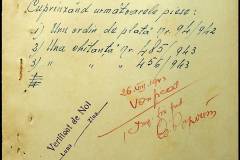 Cuprinzând următoarele piese:
1) Un ordin de plată nr. 94/942
2) Una chitanță nr. 485/943
3) " " " 456/943
#
26 VIII 1943
Verificat
Verificat de Noi
Luna Ziua